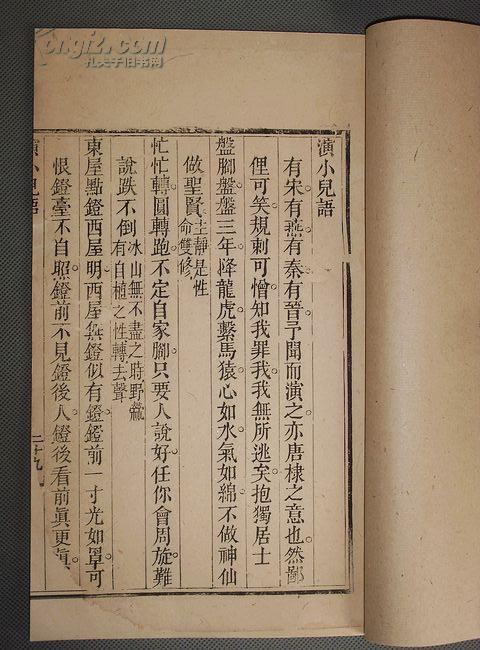 演小兒語
有宋有燕有秦有晉予聞而演之亦唐棣之意也然鄙
俚可笑規刺可憎知我罪我我無所逃矣抱獨居士
盤腳盤盤三年降龍虎繫馬猿心如水氣如綿不做神仙
做聖賢主靜是性命雙修
忙忙轉圓轉跑不定自家腳只要人說好任你會周旋難
說跌不倒冰山無不盡之時野鷰有自植之性轉去聲
東屋點鐙西屋明西屋無鐙似有鐙鐙前一寸光如罩可
恨鐙臺不自照鐙前不見鐙後人鐙後看前真更真
演小兒語
二十九
kongfz.com
孔夫子旧书网